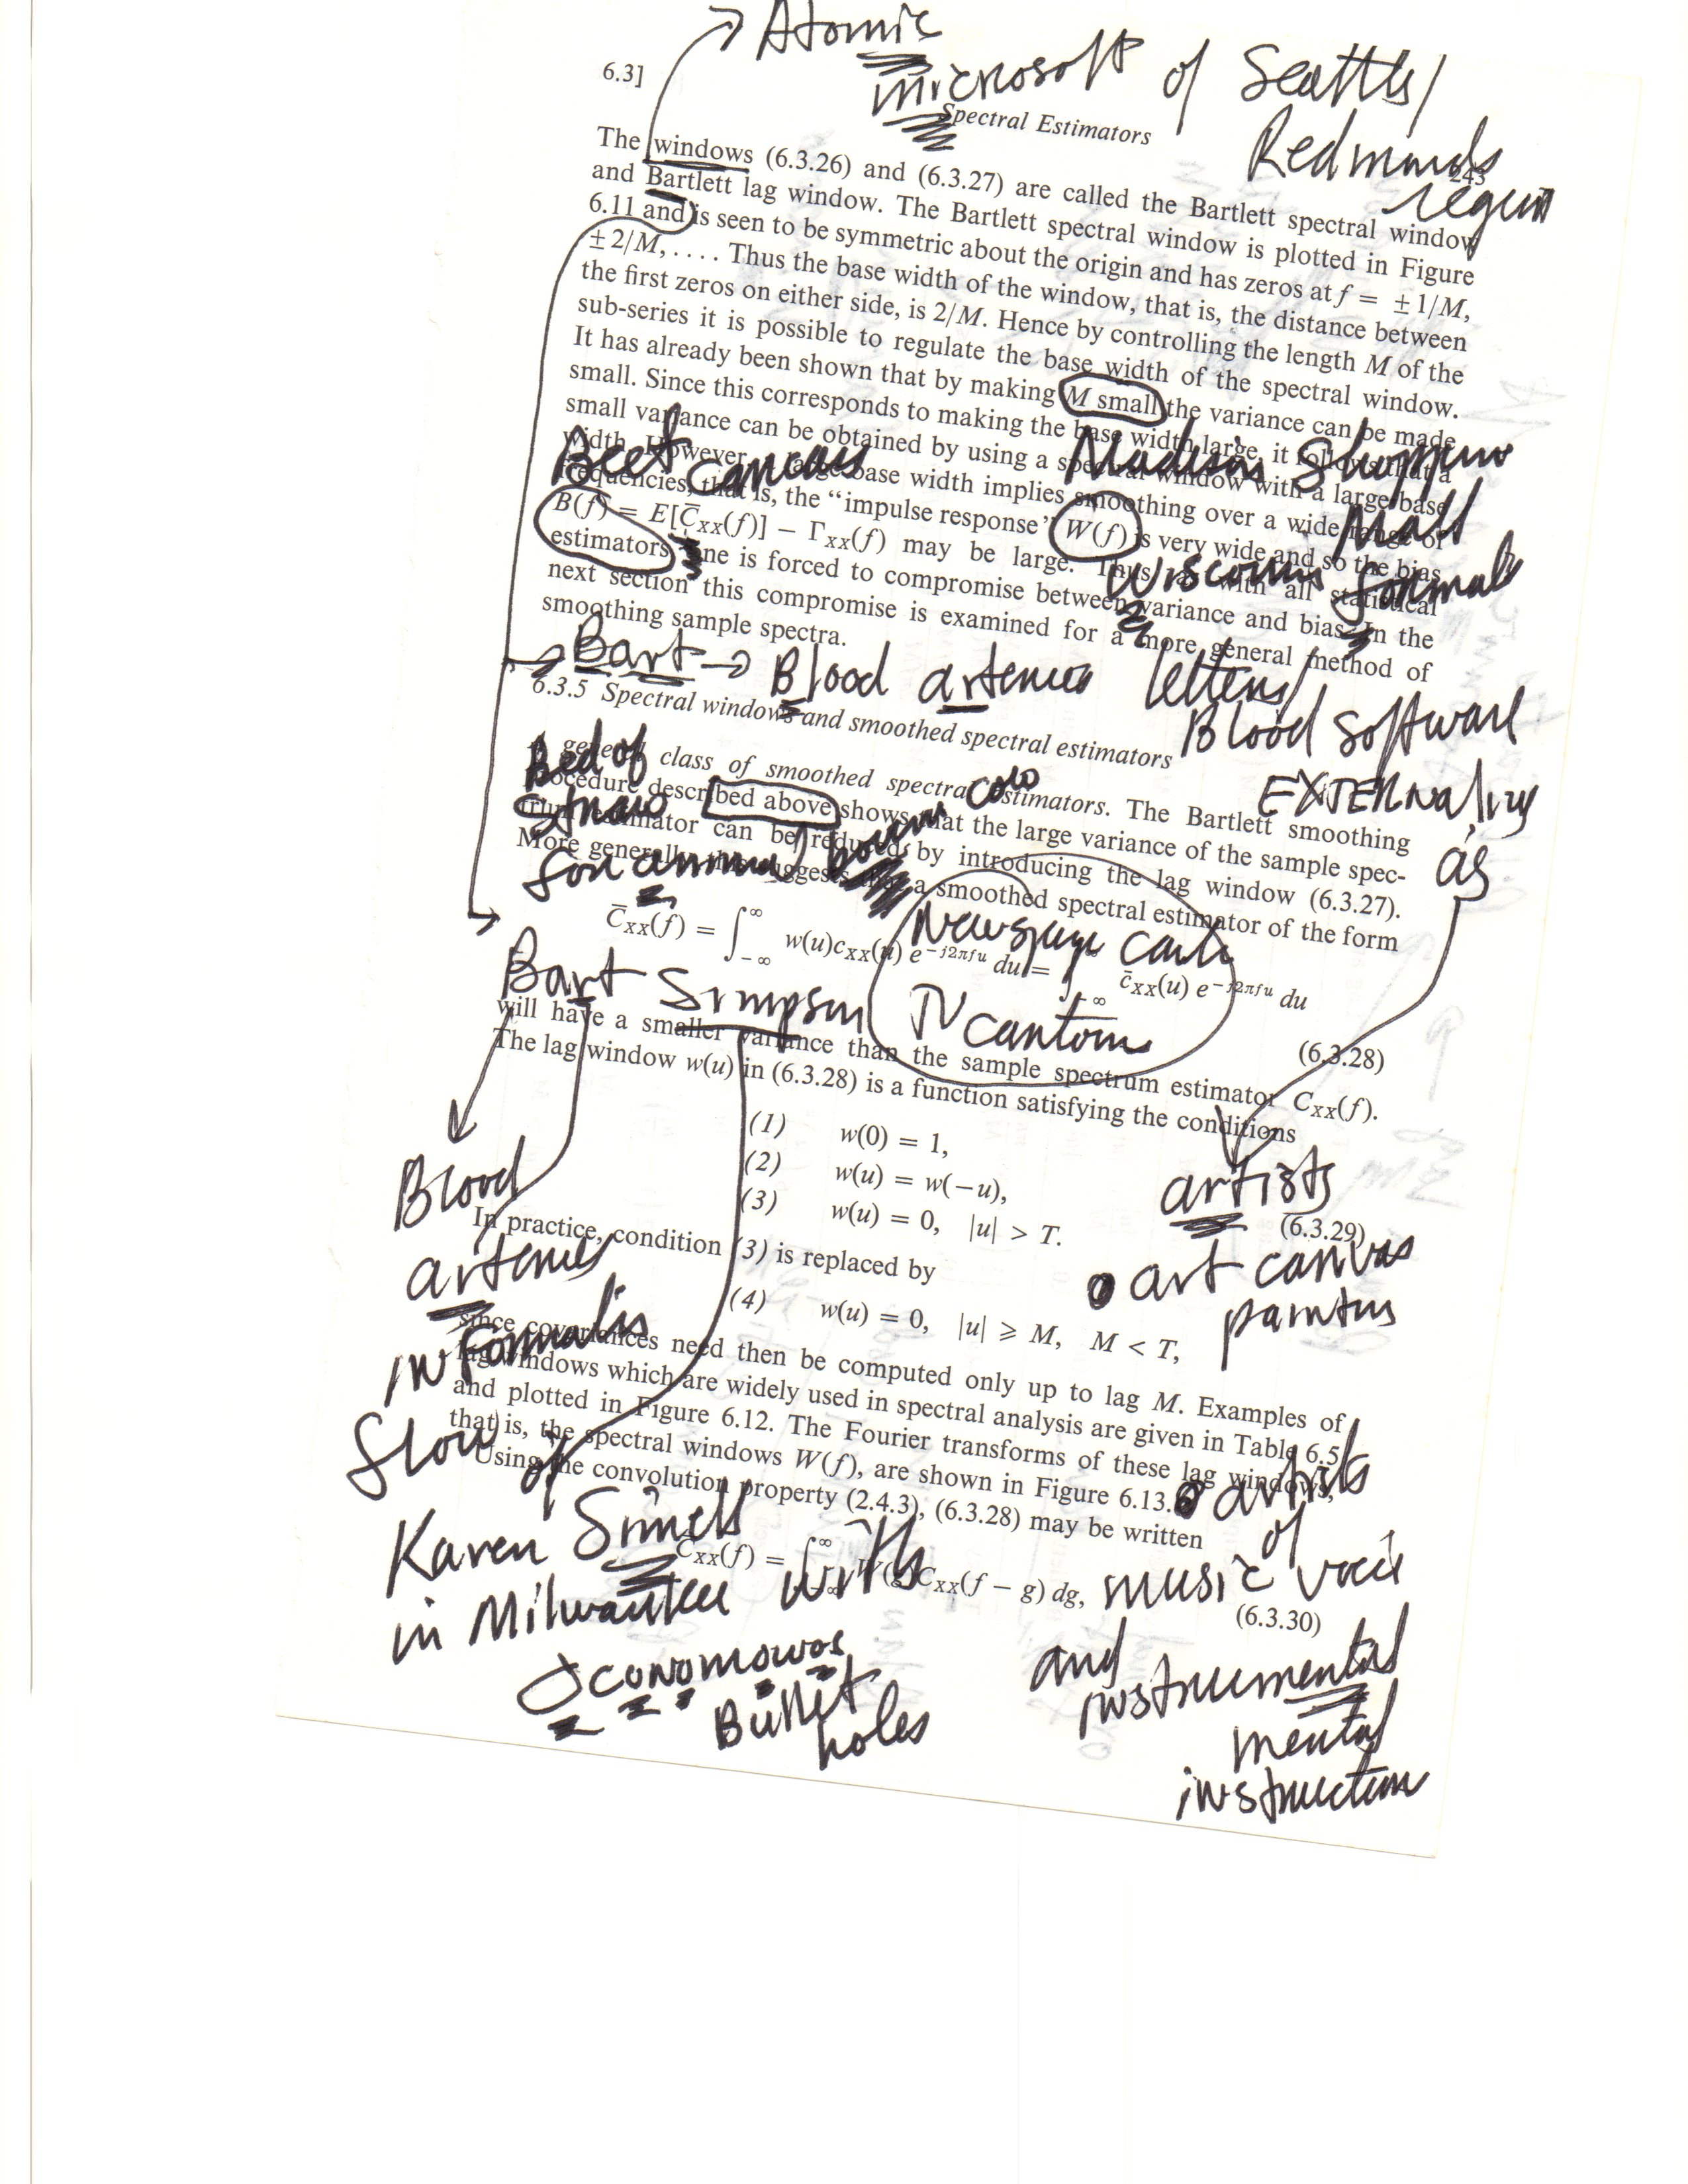 Atomic
microsoft of Seattle/
Redmonds
region
6.3]
Spectral Estimators
243
The windows (6.3.26) and (6.3.27) are called the Bartlett spectral window
and Bartlett lag window. The Bartlett spectral window is plotted in Figure
6.11 and is seen to be symmetric about the origin and has zeros at f = ±1/M,
±2/M, .... Thus the base width of the window, that is, the distance between
the first zeros on either side, is 2/M. Hence by controlling the length M of the
sub-series it is possible to regulate the base width of the spectral window.
It has already been shown that by making M small the variance can be made
small. Since this corresponds to making the base width large, it follows that a
small variance can be obtained by using a spectral window with a large base
width. However, a large base width implies smoothing over a wide range of
frequencies, that is, the “impulse response” W(f) is very wide and so the bias
B(f) = E[C̄xx(f)] − Γxx(f) may be large. Thus, as with all statistical
estimators, one is forced to compromise between variance and bias. In the
next section this compromise is examined for a more general method of
smoothing sample spectra.
Beet
Madison Shopping
Mall
Wisconsin format
Bart → Blood arteries letters/
Blood software
EXTERnalize
as
6.3.5 Spectral windows and smoothed spectral estimators
A general class of smoothed spectral estimators. The Bartlett smoothing
procedure described above shows that the large variance of the sample spec-
trum estimator can be reduced by introducing the lag window (6.3.27).
More generally, this suggests that a smoothed spectral estimator of the form
Bed of
straw
for animal
C̄xx(f) = ∫_{-∞}^{∞} w(u)cxx(u) e^{-j2πfu} du = ∫_{-∞}^{∞} c̄xx(u) e^{-j2πfu} du
(6.3.28)
TV
Bart Simpson
will have a smaller variance than the sample spectrum estimator Cxx(f).
The lag window w(u) in (6.3.28) is a function satisfying the conditions
(1) w(0) = 1,
(2) w(u) = w(−u),
(3) w(u) = 0, |u| > T.
(6.3.29)
Blood
arteries
artists
art canvas
painters
In practice, condition (3) is replaced by
(4) w(u) = 0, |u| ⩾ M, M < T,
since covariances need then be computed only up to lag M. Examples of
lag windows which are widely used in spectral analysis are given in Table 6.5
and plotted in Figure 6.12. The Fourier transforms of these lag windows,
that is, the spectral windows W(f), are shown in Figure 6.13.
Using the convolution property (2.4.3), (6.3.28) may be written
C̄xx(f) = ∫_{-∞}^{∞} W(g)Cxx(f − g) dg,
(6.3.30)
of
Karen
in Milwaukee with
Oconomowoc
Bullet
holes
artists
of
music voice
and
instrumental
mental
instruction